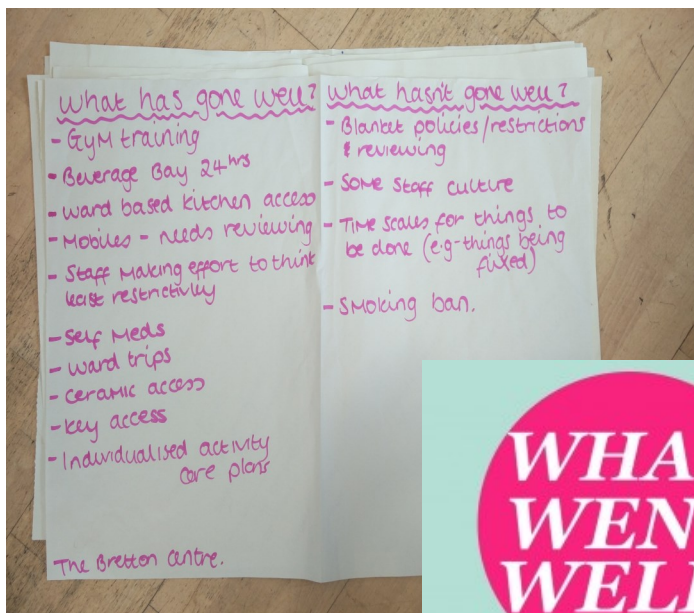 What has gone well?
- Gym training
- Beverage Bay 24hrs
- ward based kitchen access
- Mobiles - needs reviewing
- Staff Making effort to think
least restrictivley
- Self Meds
- ward trips
- ceramic access
- key access
- Individualised activity
care plans
The Bretton Centre.
What hasn't gone well?
- Blanket policies/restrictions
& reviewing
- Some Staff culture
- Time scales for things to
be done (e.g-things being
fixed)
- Smoking ban.
WHA
WEN
WELL